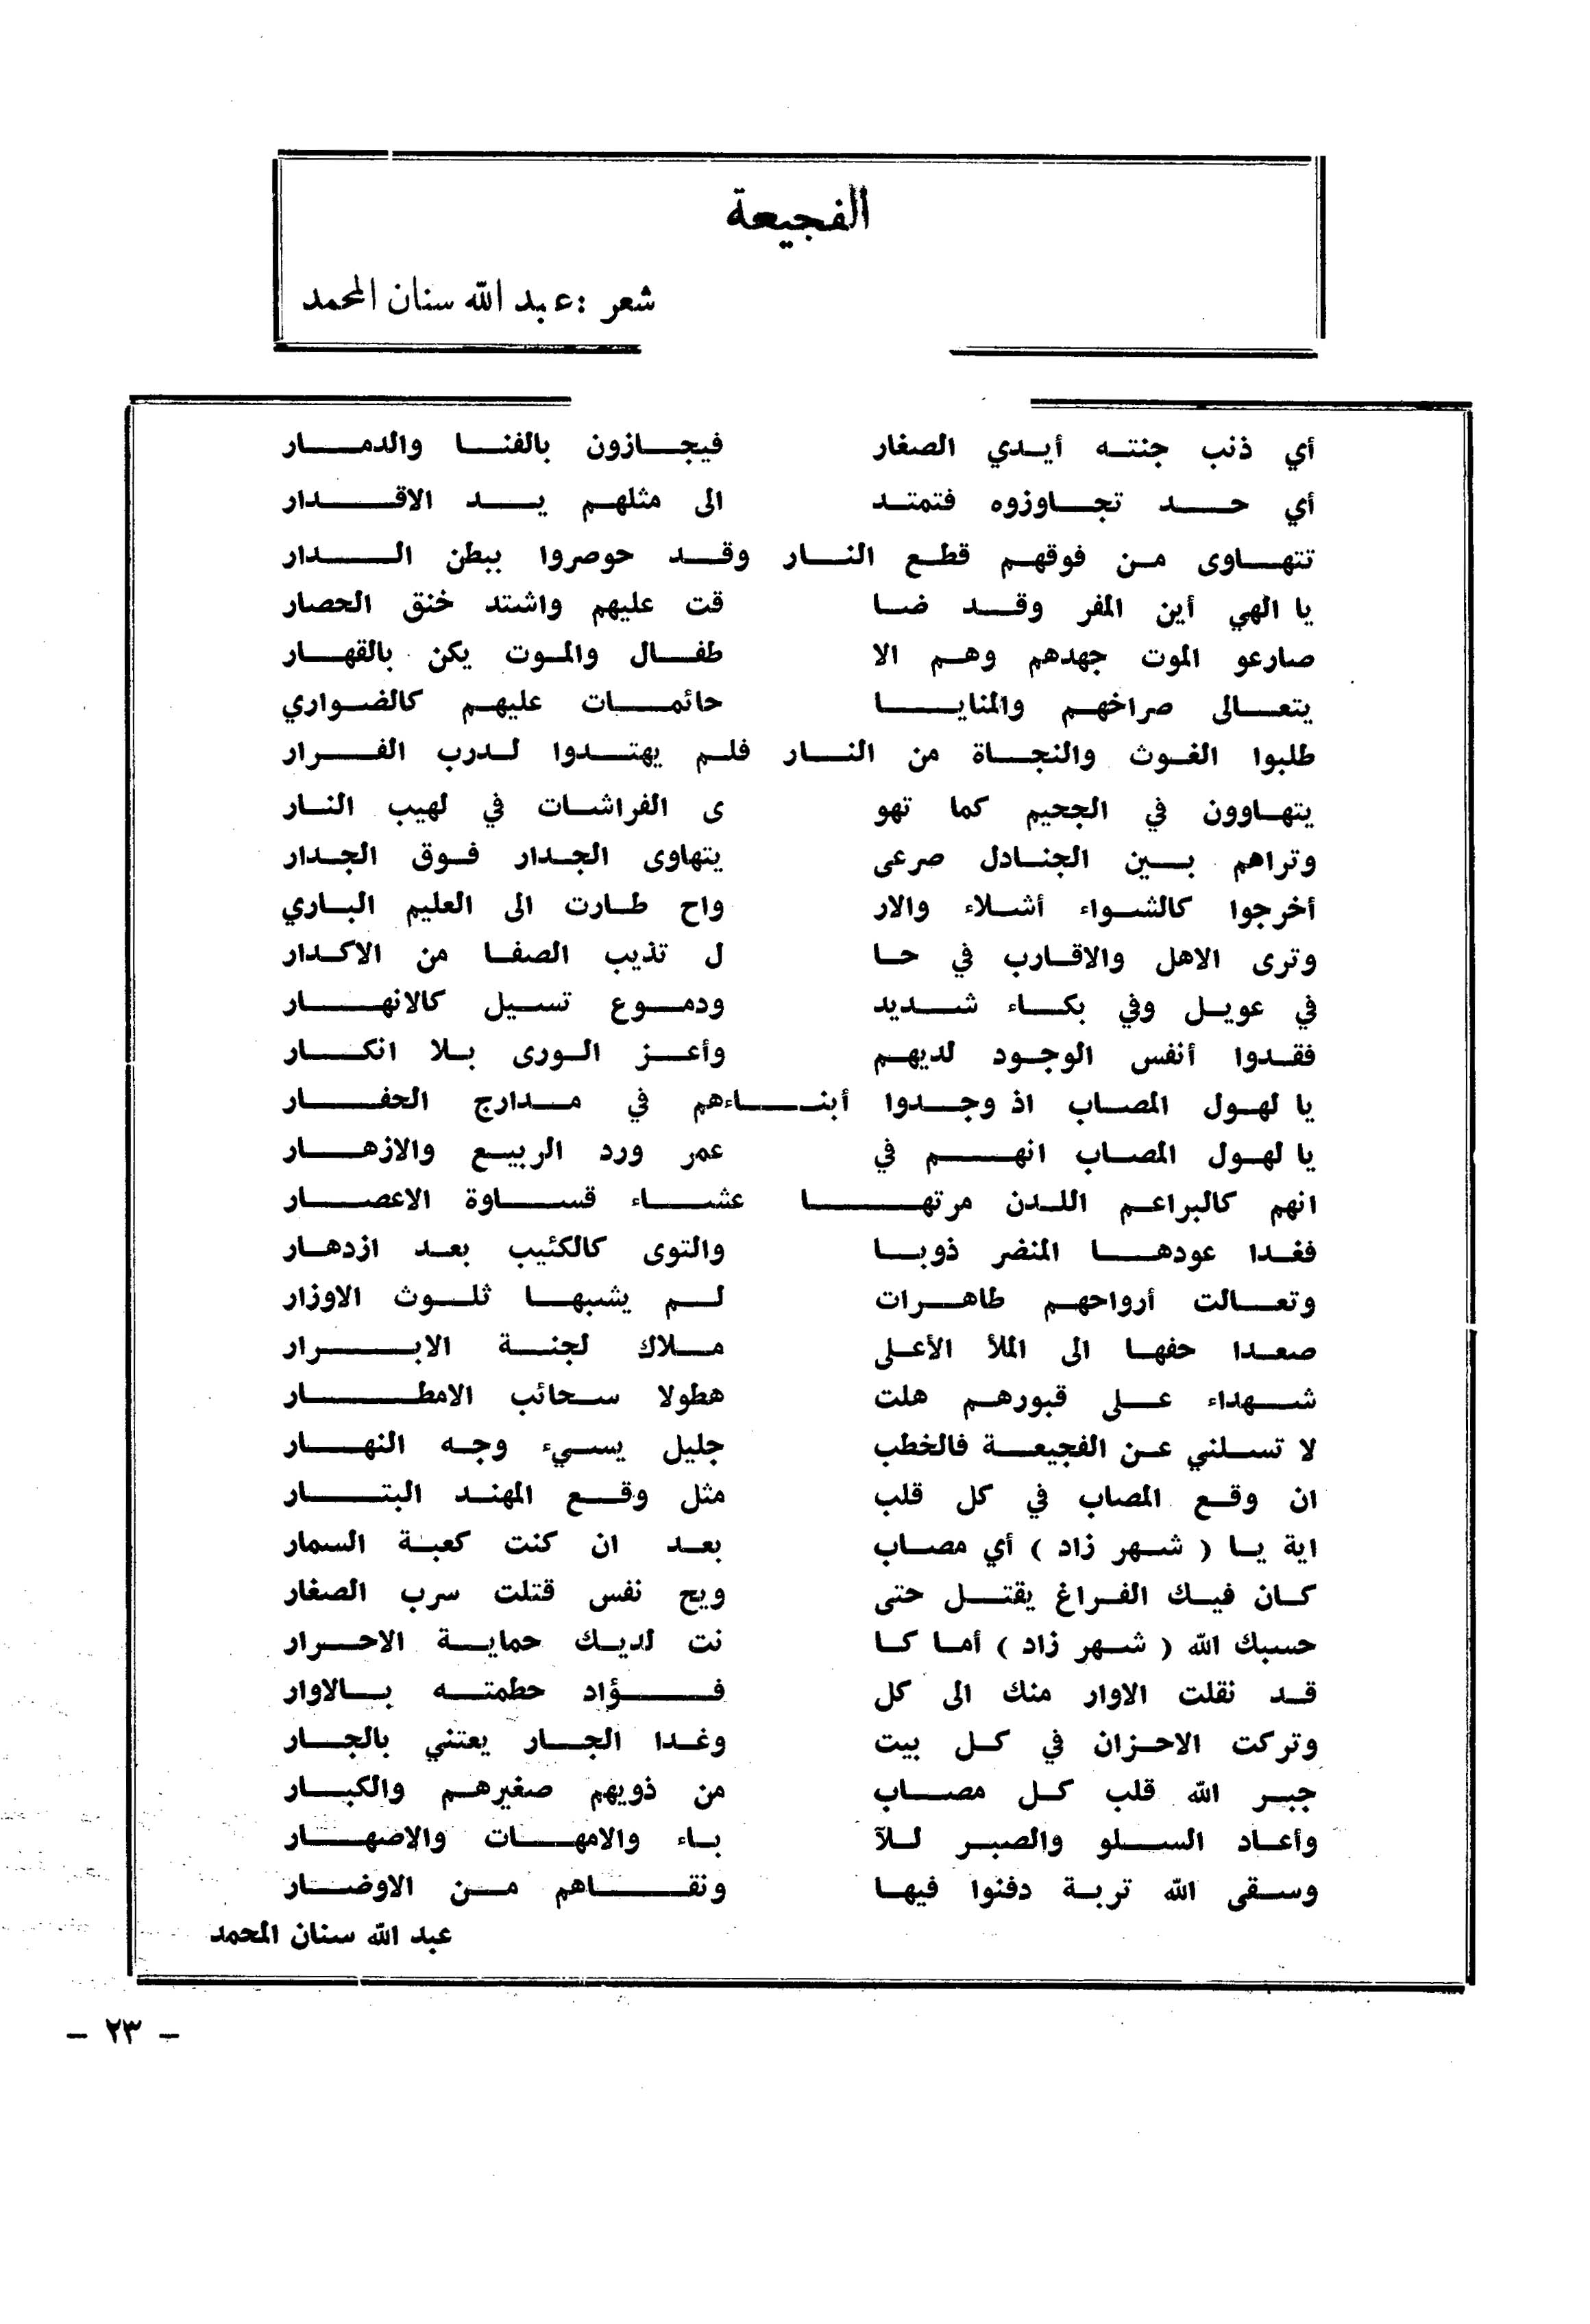 الفجيعة
شعر : عبد الله سنان المحمد
أي ذنب جنته أيدي الصغار فيجازون بالفنا والدمار
أي حد تجاوزوه فتمتد الى مثلهم يد الاقدار
تتهاوى من فوقهم قطع النار وقد حوصروا ببطن الدار
يا الهي أين المفر وقد ضا قت عليهم واشتد خنق الحصار
صارعو الموت جهدهم وهم الا طفال والموت يكن بالقهار
يتعالى صراخهم والمنايا حائمات عليهم كالضواري
طلبوا الغوث والنجاة من النار فلم يهتدوا لدرب الفرار
يتهاوون في الجحيم كما تهو ى الفراشات في لهيب النار
وتراهم بين الجنادل صرعى يتهاوى الجدار فوق الجدار
أخرجوا كالشواء أشلاء والار واح طارت الى العليم الباري
وترى الاهل والاقارب في حا ل تذيب الصفا من الاكدار
في عويل وفي بكاء شديد ودموع تسيل كالانهار
فقدوا أنفس الوجود لديهم وأعز الورى بلا انكار
يا لهول المصاب اذ وجدوا أبناءهم في مدارج الحفار
يا لهول المصاب انهم في عمر ورد الربيع والازهار
انهم كالبراعم اللدن مرتها عشاء قساوة الاعصار
فغدا عودها المنضر ذوبا والتوى كالكئيب بعد ازدهار
وتعالت أرواحهم طاهرات لم يشبها ثلوث الاوزار
صعدا حفها الى الملأ الأعلى ملاك لجنة الابرار
شهداء على قبورهم هلت هطولا سحائب الامطار
لا تسلني عن الفجيعة فالخطب جليل يسيء وجه النهار
ان وقع المصاب في كل قلب مثل وقع المهند البتار
اية يا ( شهر زاد ) أي مصاب بعد ان كنت كعبة السمار
كان فيك الفراغ يقتل حتى ويح نفس قتلت سرب الصغار
حسبك الله ( شهر زاد ) أما كا نت لديك حماية الاحرار
قد نقلت الاوار منك الى كل فؤاد حطمته بالاوار
وتركت الاحزان في كل بيت وغدا الجار يعتني بالجار
جبر الله قلب كل مصاب من ذويهم صغيرهم والكبار
وأعاد السلو والصبر للآ باء والامهات والاصهار
وسقى الله تربة دفنوا فيها ونقاهم من الاوضار
عبد الله سنان المحمد
- ٢٣ -